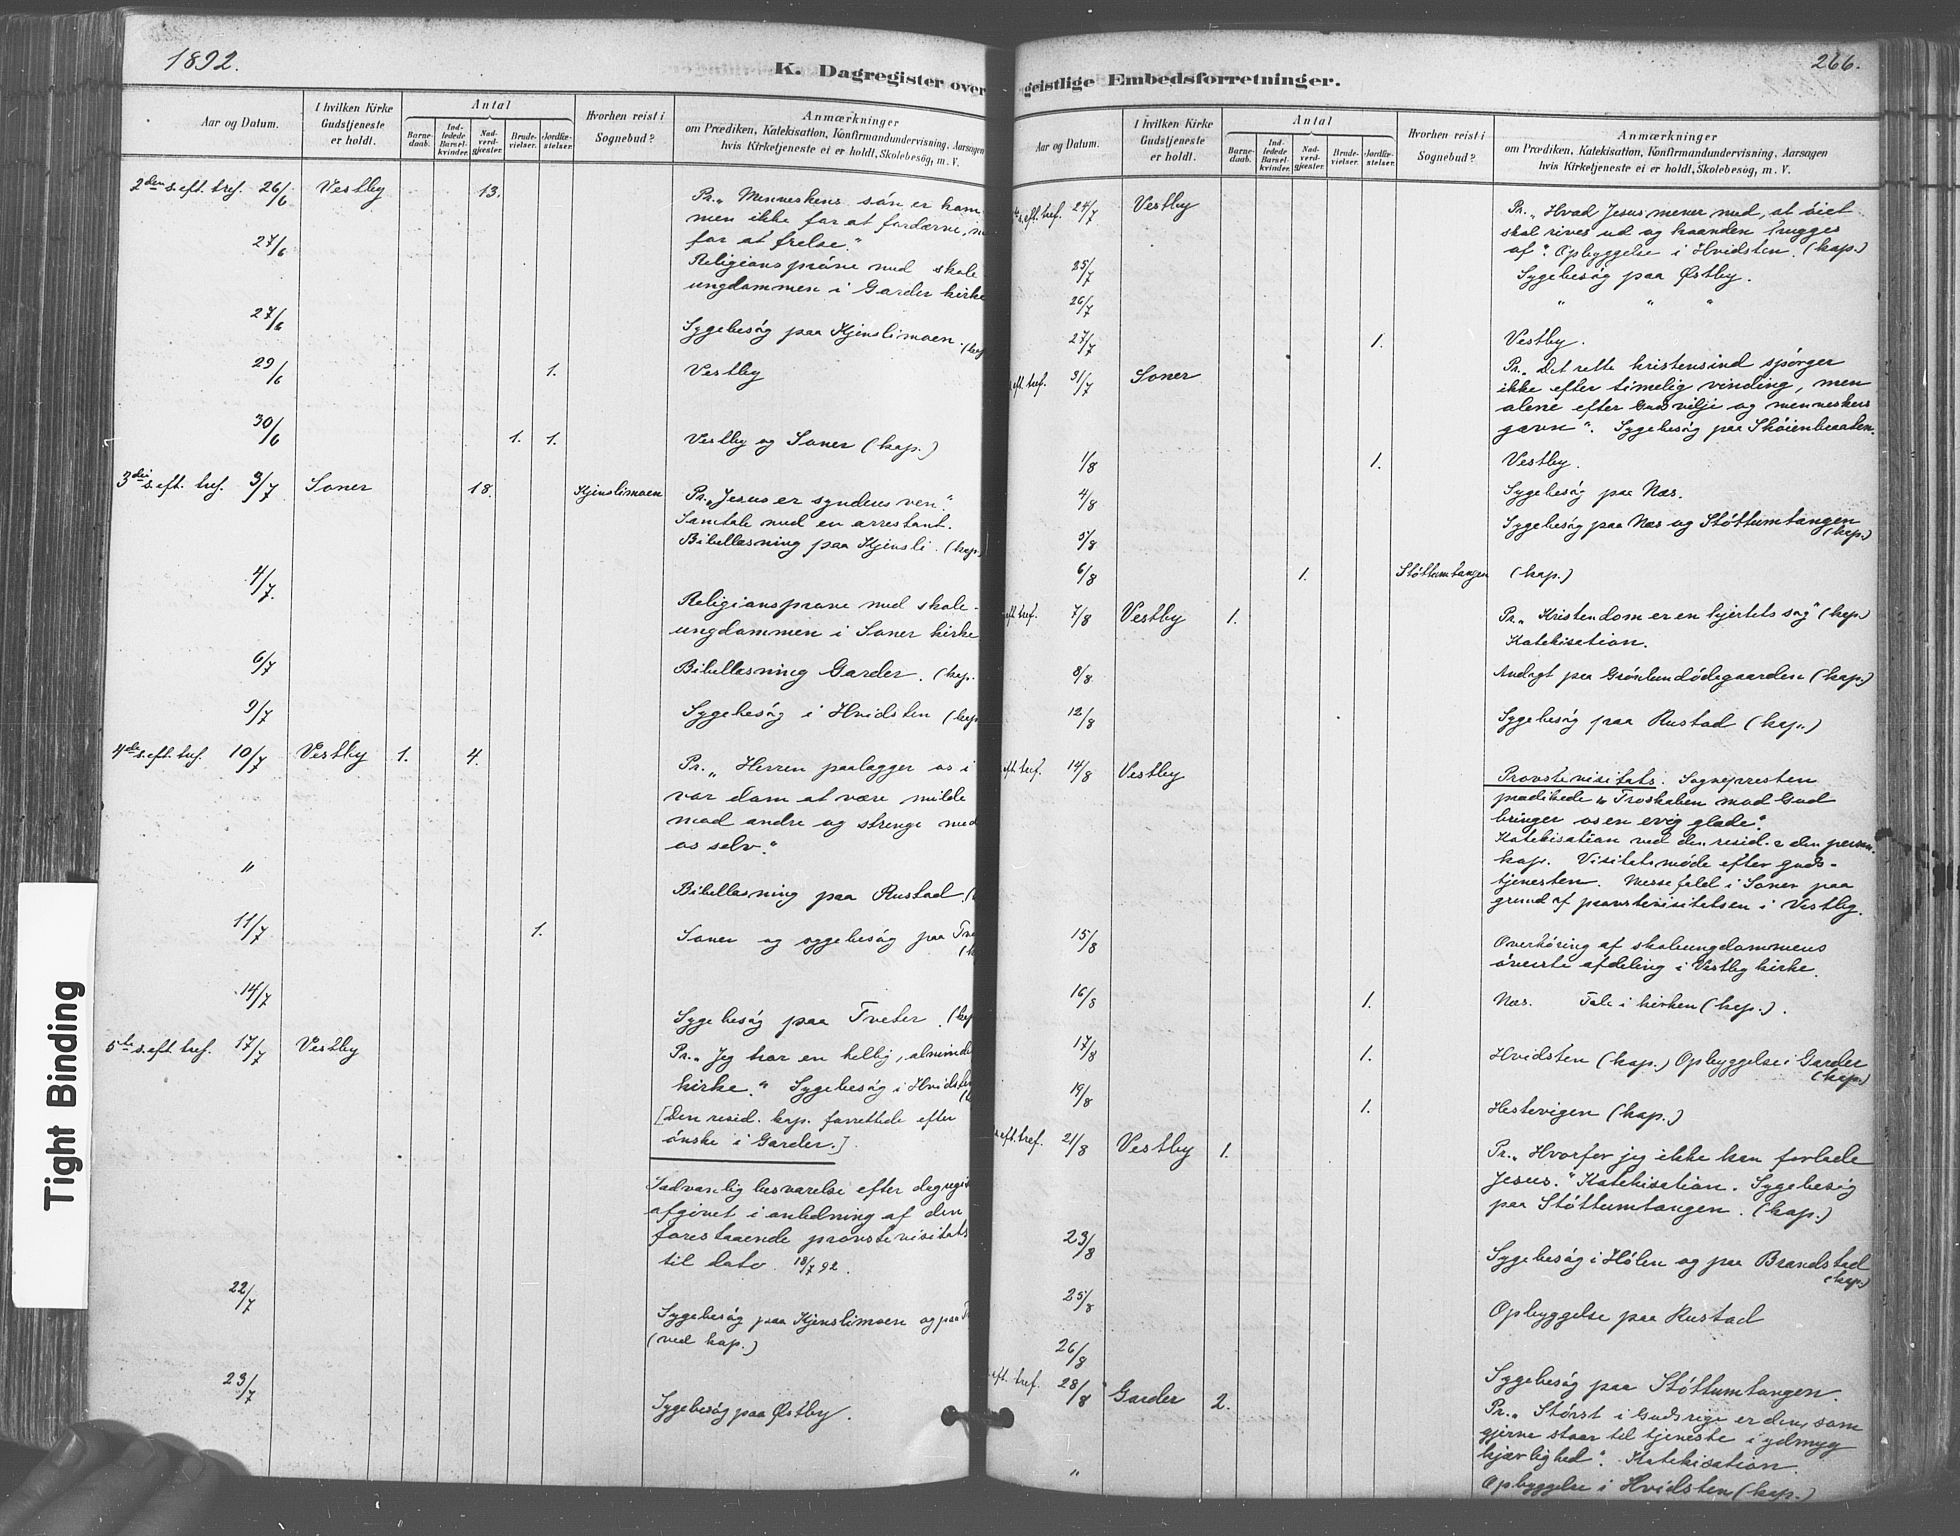 1892.
K. Dagregister over
Aar og Datum.
I hvilken Kirke Gudstjeneste er holdt.
Antal
Barne-daab.
Ind-ledede Barsel-kvinder.
Nad-verd-gjæster.
Brude-vielser.
Jordfæ-stelser.
Hvorhen reist i Sognebud?
Anmærkninger
om Prædiken, Katekisation, Konfirmandundervisning, Aarsagen
hvis Kirketjeneste ei er holdt, Skolebesøg, m. V.
2den s. eft. tref. 26/6 Vestby 13. Pr. „Menneskens sön er kom-
men ikke for at fordærve, m
for at frelse.“
27/6 Religionspröve med skole
ungdommen i Garder kirke
27/6 Sygebesög paa Kjenslimoen. (kap
29/6 1. Vestby
30/6 1. 1. Vestby og Soner (kap.)
3die s. eft. tref. 3/7 Soner 18. Kjenslimoen Pr. „Jesus er synderes ven.“
Samtale med en arrestant.
Bibellæsning paa Kjensli. (kap.)
4/7. Religionspröve med skole-
ungdommen i Soner kirke
6/7 Bibellæsning Garder. (kap.
9/7 Sygebesög i Hvidsten (kap
4de s. eft. tref. 10/7 Vestby 1. 4. Pr. „Herren paalægger os i
vor dom at være milde
mod andre og strenge mod
os selv.“
" Bibellæsning paa Rustad. (
11/7 1. Soner og sygebesög paa Tve
(k
14/7 Sygebesög paa Tveter. (kap
5te s. eft. tref. 17/7 Vestby Pr. „Jeg tror en hellig, alminde
kirke.“ Sygebesög i Hvidsten
[Den resid. kap. forrettede efter
önske i Garder.]
Sædvanlig besvarelse efter dagregist
afgivet i anledning af den
forestaaende provstevisitats
til dato. 18/7 92.
22/7 Sygebesög paa Kjenslimoen og paa T
(ved kap.)
23/7 Sygebesög paa Østby.
266.
geistlige Embedsforretninger.
Aar og Datum.
I hvilken Kirke Gudstjeneste er holdt.
Antal
Barne-daab.
Ind-ledede Barsel-kvinder.
Nad-verd-gjæster.
Brude-vielser.
Jordfæ-stelser.
Hvorhen reist i Sognebud?
Anmærkninger
om Prædiken, Katekisation, Konfirmandundervisning, Aarsagen
hvis Kirketjeneste ei er holdt, Skolebesøg, m. V.
te s. eft. tref. 24/7 Vestby Pr. „Hvad Jesus mener med, at öiet
skal rives ud og haanden hugges
af“. Opbyggelse i Hvidsten. (kap.)
25/7 Sygebesög paa Østby.
26/7 " " "
27/7 1. Vestby.
eft. tref. 31/7 Soner Pr. „Det rette kristensind spörger
ikke efter timelig vinding, men
alene efter Guds vilje og menneskers
gavn“. Sygebesög paa Sköienbraaten.
1/8 1. Vestby.
4/8 Sygebesög paa Næs.
5/8 Sygebesög paa Næs og Stöttumtangen
(kap.)
6/8 1. Stöttumtangen (kap.)
eft. tref. 7/8 Vestby 1. Pr. „Kristendom er en hjertets sag“ (kap.)
Katekisation.
8/8 Andagt paa Grönlundödegaarden (kap.)
12/8 Sygebesög paa Rustad (kap.)
eft. tref. 14/8 Vestby Provstevisitats. Sognepresten
prædikede „Troskaben mod Gud
bringer os en evig glæde“.
Katekisation ved den resid. & den person.
kap. Visitatsmöde efter guds-
tjenesten. Messefald i Soner paa
grund af provstevisitatsen i Vestby.
15/8 Overhöring af skoleungdommens
överste afdeling i Vestby kirke.
16/8 1. Næs. Tale i kirken (kap.).
17/8 1. Hvidsten (kap.) Opbyggelse i Garder
(kap.)
19/8 1. Hestevigen (kap.)
s. eft. tref. 21/8 Vestby 1. Pr. „Hvorfor jeg ikke kan forlade
Jesus.“ Katekisation. Sygebesög
paa Stöttumtangen. (kap.)
23/8 Sygebesög i Hölen og paa Brandstad
(kap.)
25/8 Opbyggelse paa Rustad
26/8 Sygebesög paa Stöttumtangen.
eft. tref. 28/8 Garder 2. Pr. „Störst i Guds rige er den, som
gjerne staar til tjeneste i ydmyg
kjærlighed“. Katekisation.
" Opbyggelse i Hvidsten (kap.)
Tight Binding